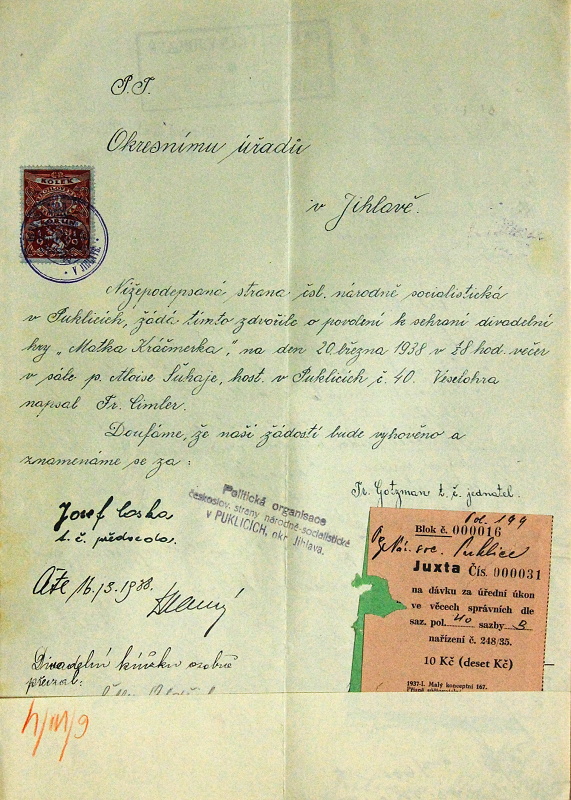 P. T.
Okresnímu úřadů
v Jihlavě.
KOLEK
V JIHLAVĚ
Nížepodepsaná strana čsl. národně socialistická
v Puklicích, žádá tímto zdvořile o povolení k sehraní divadelní
hry „Matka Kráčmerka", na den 20. března 1938 v 1/2 8 hod. večer
v sále p. Aloise Sukaje, host. v Puklicích č. 40. Veselohra
napsal Fr. Cimler.
Doufáme, že naší žádostí bude vyhověno a
znamenáme se za:
Fr. Gotzman t. č. jednatel.
Politická organisace
českoslov. strany národně-socialistické
v PUKLICÍCH, okr. Jihlava.
Josef
t. č. předseda.
16./3. 1938.
Divadelní knížku osobně
převzal:
Pol. 199
Blok č. 000016
Nár. soc. Puklice
Juxta Čís. 000031
na dávku za úřední úkon
ve věcech správních dle
saz. pol. 40 sazby B
nařízení č. 248/35.
10 Kč (deset Kč)
1937-I. Malý konceptní 167.